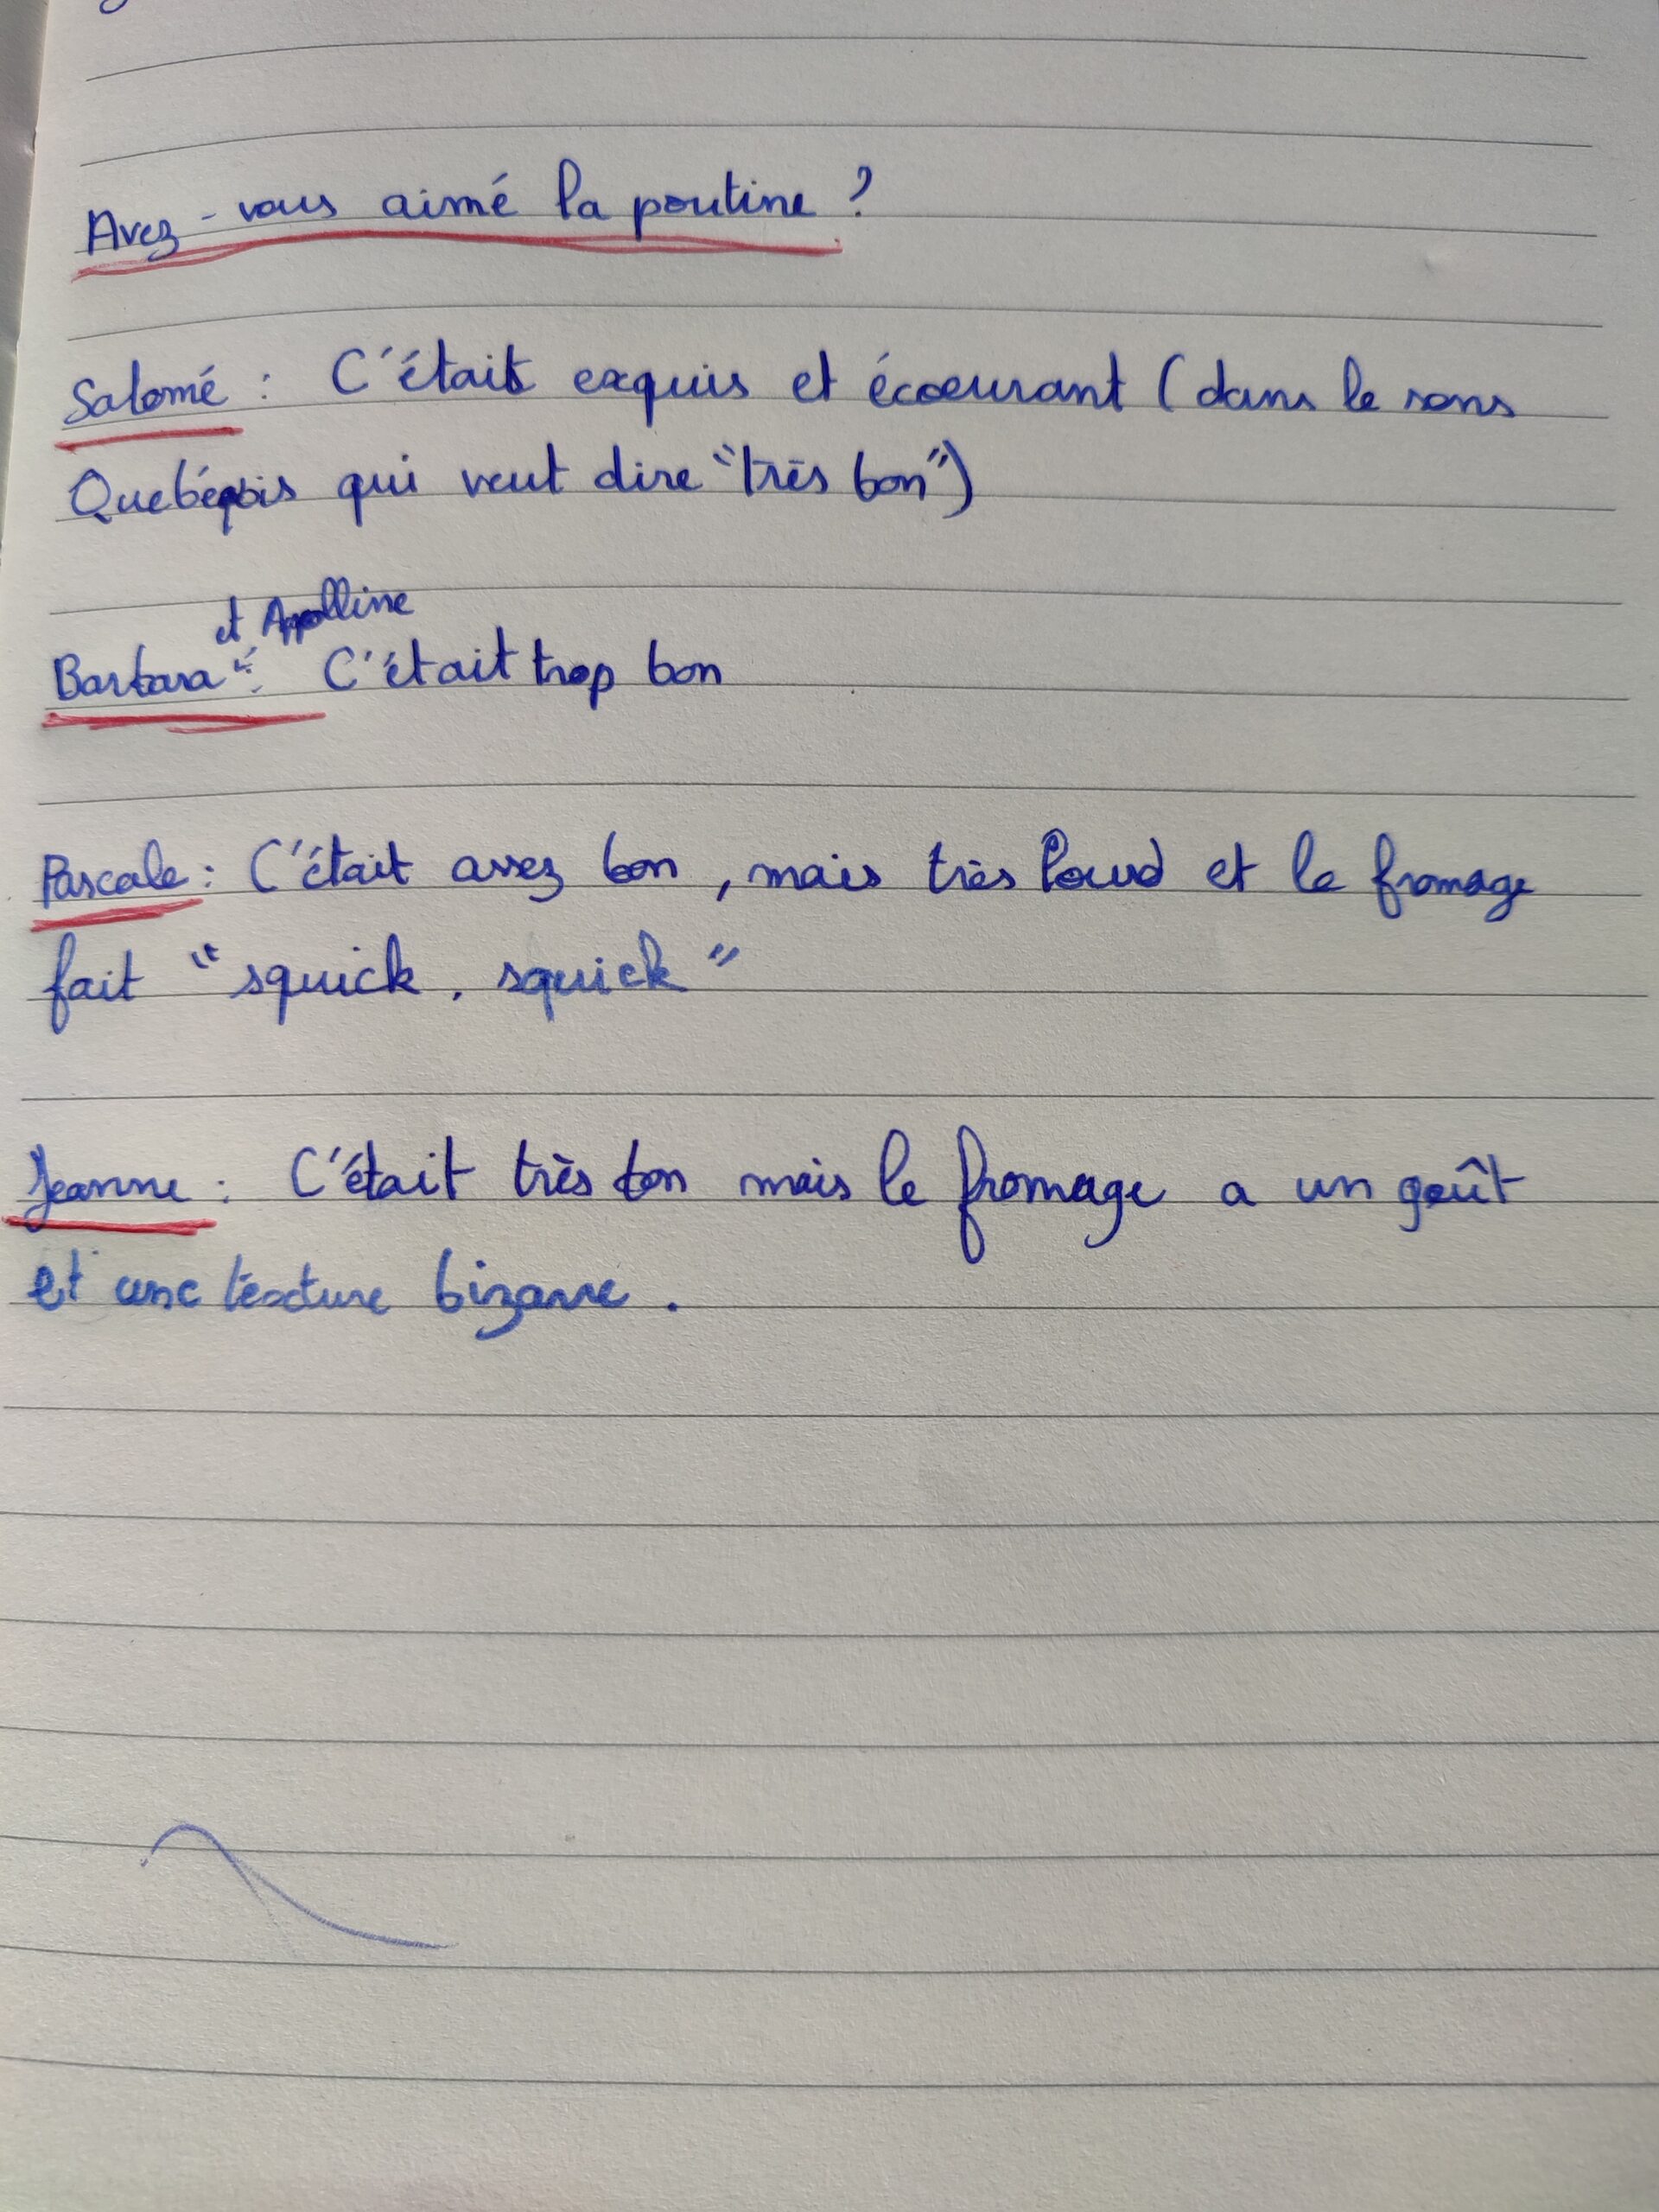 Avez-vous aimé la poutine ?
Salomé : C'était exquis et écoeurant (dans le sens
Quebéçois qui veut dire "très bon")
et Apolline
Barbara : C'était trop bon
Pascale : C'était assez bon, mais très lourd et le fromage
fait "squick, squick"
Jeanne : C'était très bon mais le fromage a un goût
et une texture bizarre.